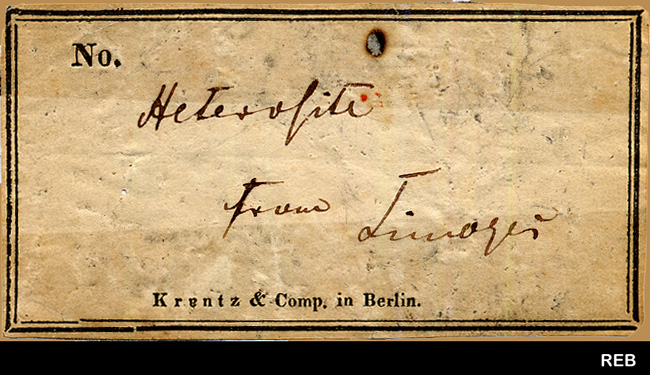 No.
Heterosite
from Limoges
Krantz & Comp. in Berlin.
REB